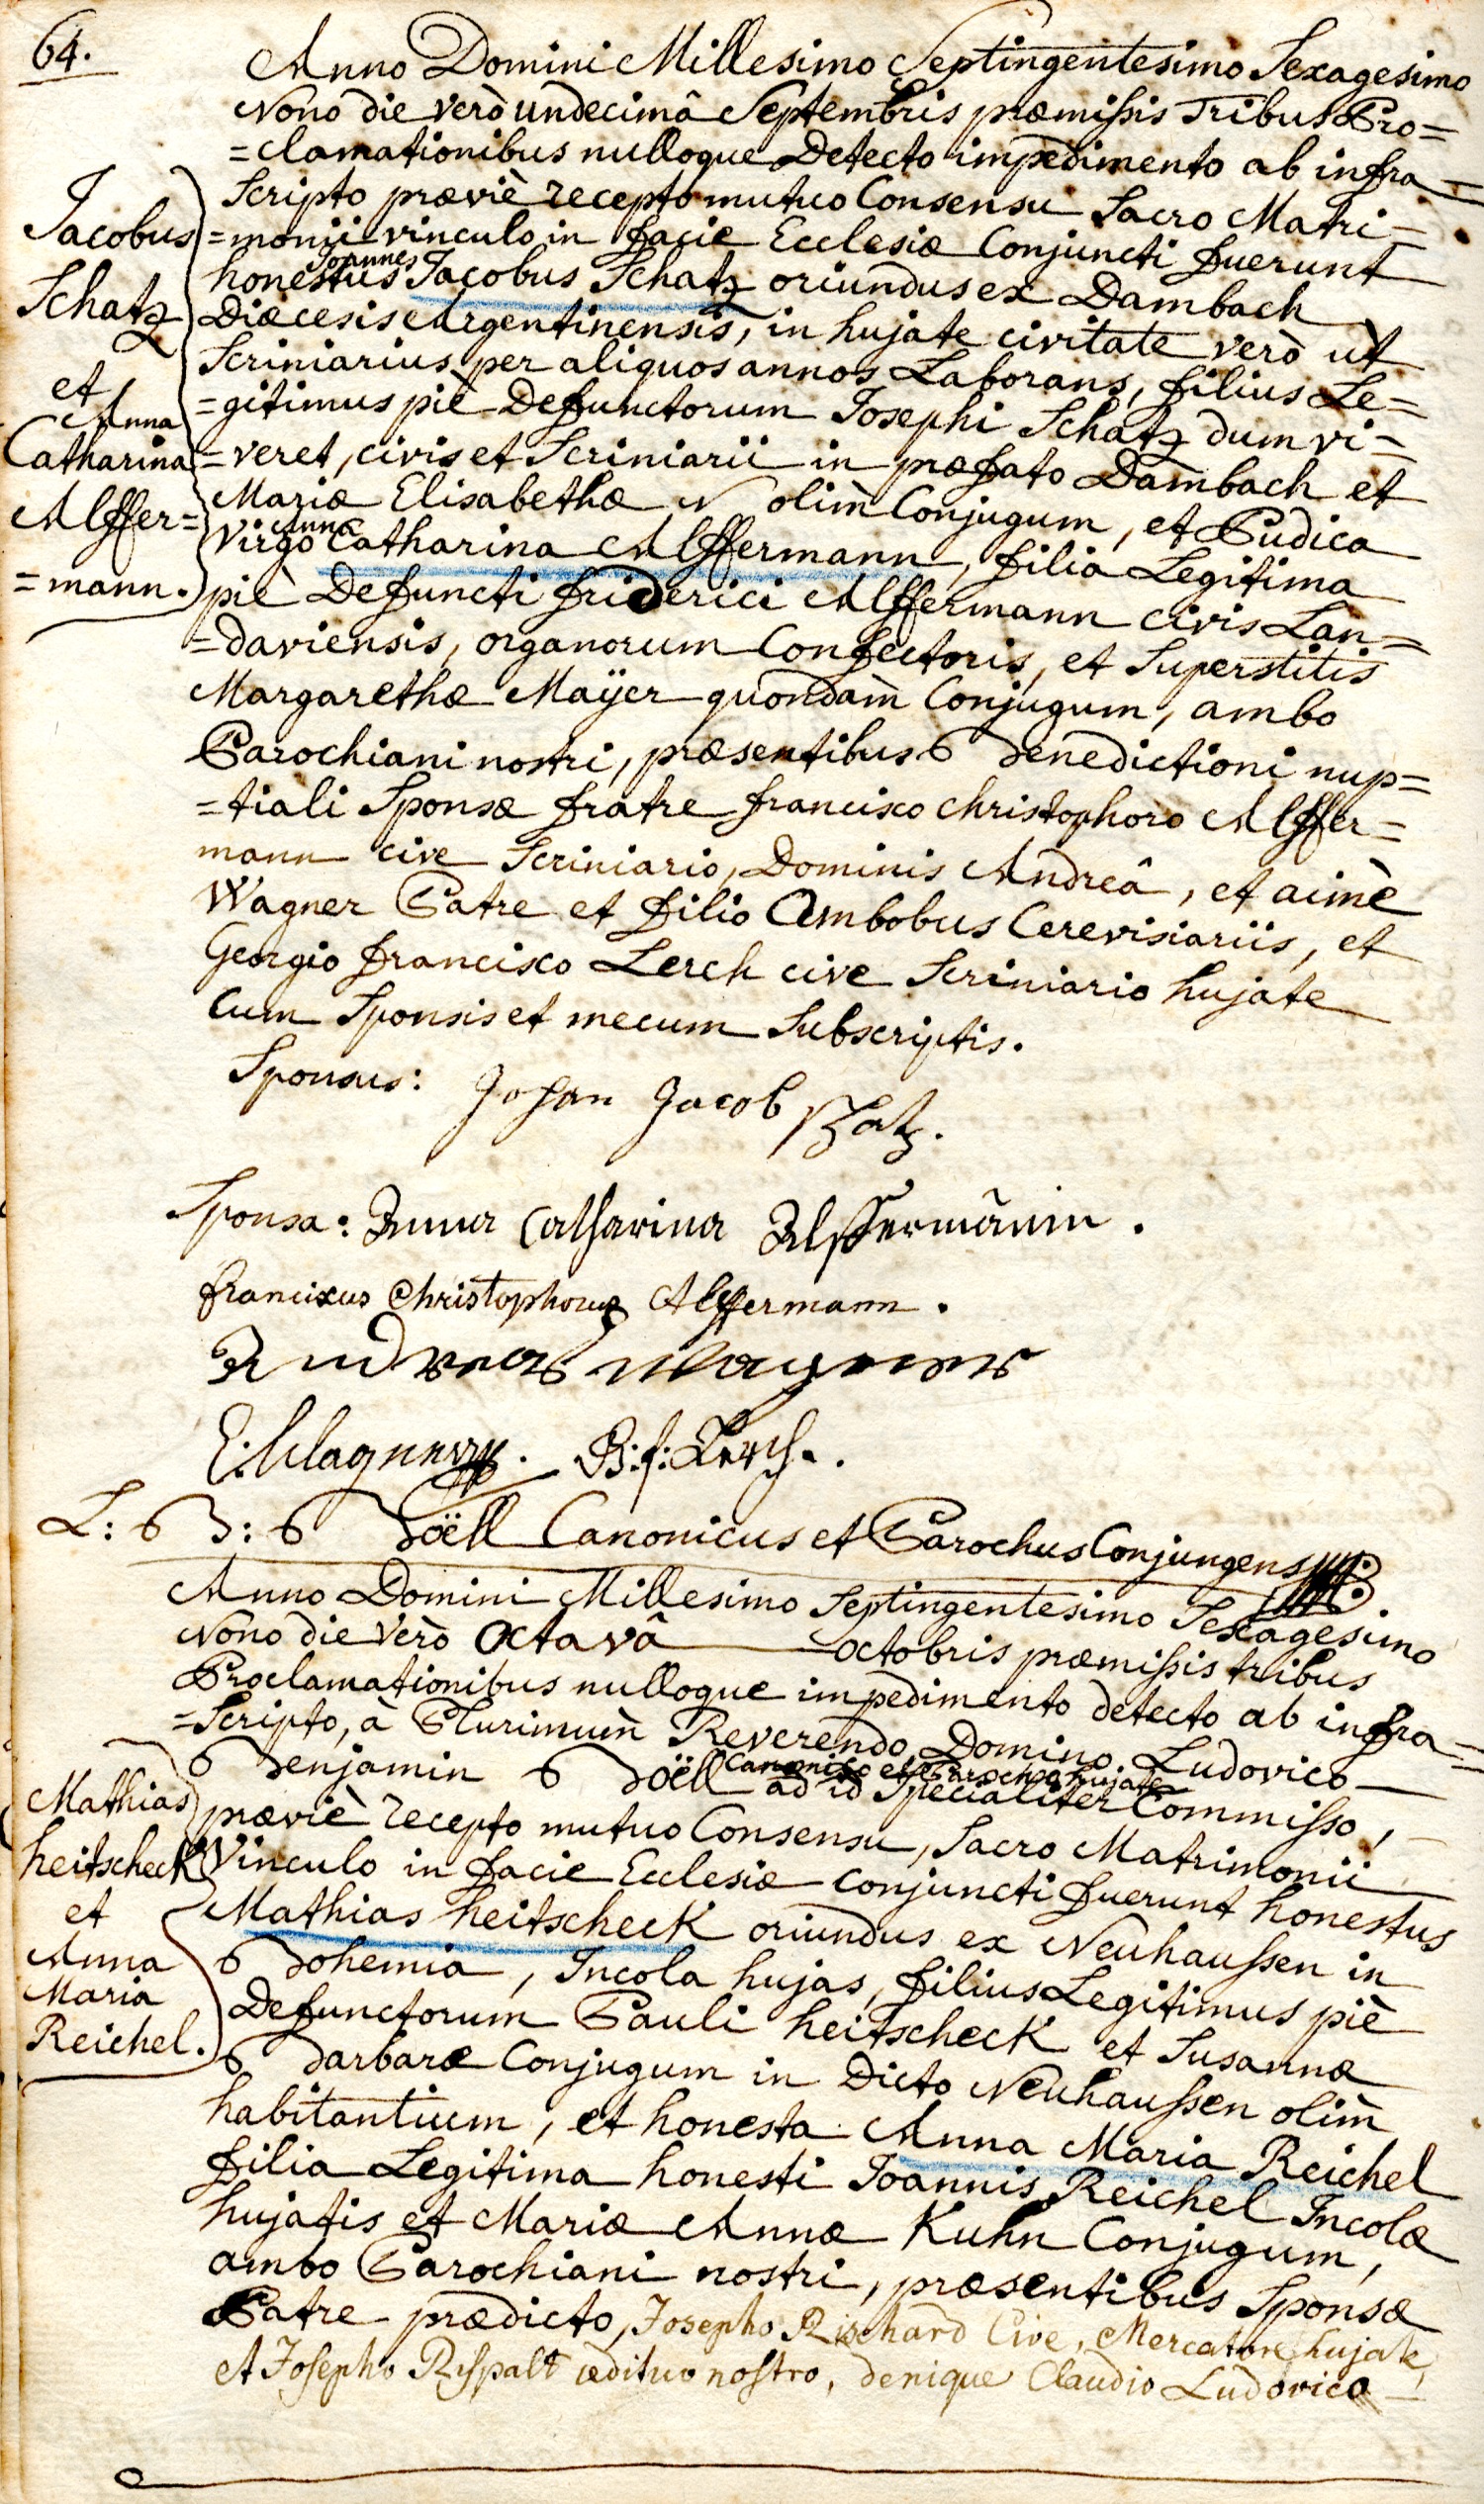 64.
Anno Domini Millesimo Septingentesimo Sexagesimo
Nono die verò undecimâ Septembris præmissis Tribus Pro=
=clamationibus nulloque Detecto impedimento ab infra=
Scripto præviè recepto mutuo Consensu Sacro Matri=
=monii vinculo in facie Ecclesiæ Conjuncti fuerunt
Joannes
honestus Jacobus Schatz oriundus ex Dambach
Diæcesis Argentinensis, in hujate civitate verò ut
Scriniarius per aliquos annos Laborans, filius Le=
=gitimus piè Defunctorum Josephi Schatz dum vi=
=veret, civis et Scriniarii in præfato Dambach et
Mariæ Elisabethæ N olim Conjugum, et Pudica
Anna
Virgo Catharina Alffermann, filia Legitima
piè Defuncti friderici Alffermann civis Lan=
=daviensis, organorum Confectoris, et Superstitis
Margarethæ Maÿer quondam Conjugum, ambo
Parochiani nostri, præsentibus Benedictioni nup=
=tiali Sponsæ fratre francisco christophoro Alffer=
mann cive Scriniario, Dominis Andreâ, et aimè
Wagner Patre et filio Ambobus Cerevisiariis, et
Georgio francisco Lerch cive Scriniario hujate
Cum Sponsis et mecum Subscriptis.
Jacobus
Schatz
et
Anna
Catharina
Alffer=
=mann.
Sponsus: Johan Jacob Schatz.
Sponsa: Anna Catharina Alffermännin.
franciscus Christophorus Alffermann.
Andreas Wagner
E: Wagner. G: f: Lerch.
L: B: Boëll Canonicus et Parochus Conjungens
Anno Domini Millesimo Septingentesimo Sexagesimo
Nono die Verò Octavâ octobris præmissis tribus
Proclamationibus nulloque impedimento detecto ab infra=
=Scripto, à Plurimùm Reverendo Domino Ludovico
Canonico et Parocho hujate
Benjamin Boëll ad id Specialiter Commisso,
præviè recepto mutuo Consensu, Sacro Matrimonii
Vinculo in facie Ecclesiæ conjuncti fuerunt honestus
Mathias heitscheck oriundus ex Neuhaussen in
Bohemia, Incola hujas, filius Legitimus piè
Defunctorum Pauli heitscheck et Susannæ
Barbaræ Conjugum in Dicto Neuhaussen olim
habitantium, et honesta Anna Maria Reichel
filia Legitima honesti Joannis Reichel Incolæ
hujatis et Mariæ Annæ Kuhn Conjugum,
ambo Parochiani nostri, præsentibus Sponsæ
Patre prædicto, Josepho Rischard Cive, Mercatore hujate,
et Josepho Rispalt ædituo nostro, denique Claudio Ludovico
Mathias
heitscheck
et
Anna
Maria
Reichel.